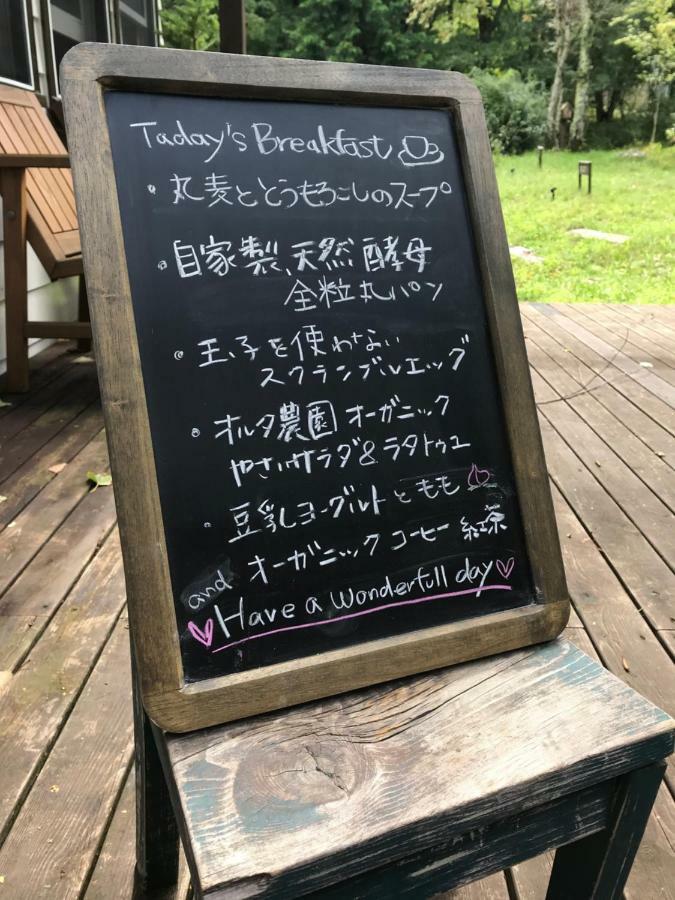 Taday's Breakfast
・丸麦ととうもろこしのスープ
・自家製、天然酵母
全粒丸パン
・玉子を使わない
スクランブルエッグ
・オルタ農園オーガニック
やさいサラダ&ラタトゥユ
・豆乳ヨーグルトともも
オーガニックコーヒー紅茶
and
Have a wonderfull day